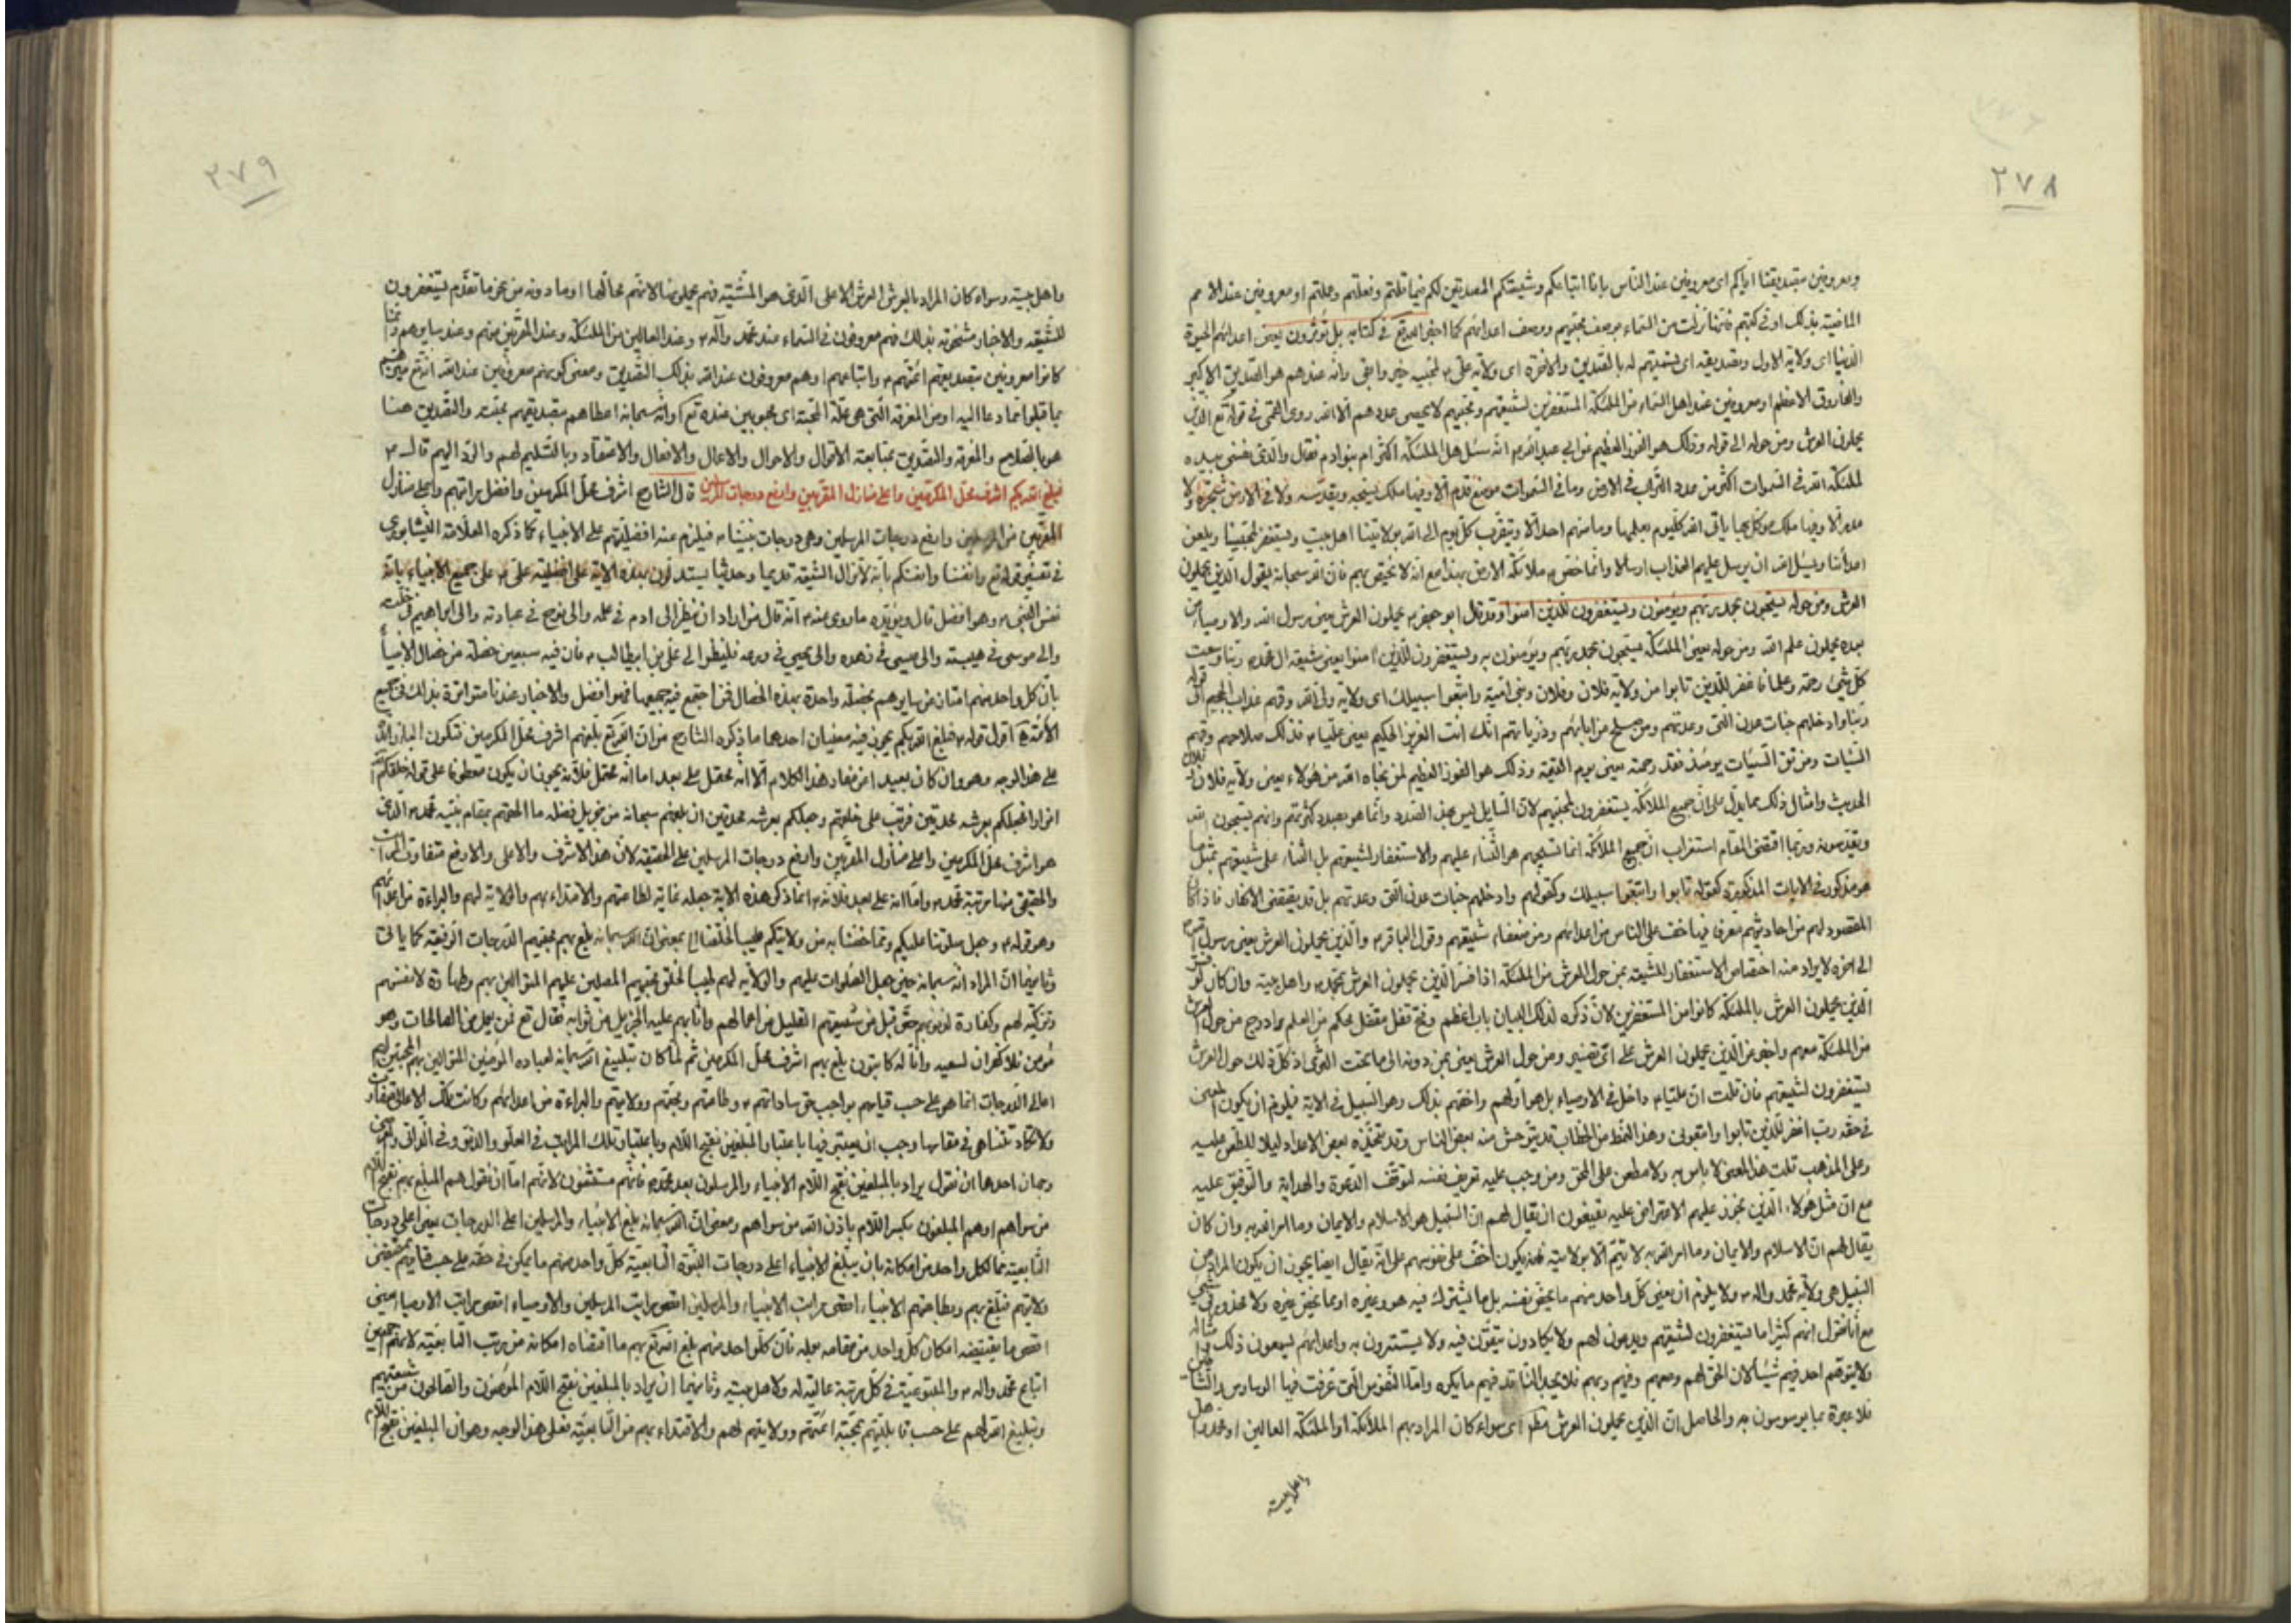 ٢٧٨
ومعروفين بتصديقنا اياكم اى معروفين عند الناس بانا اتباعكم وشيعتكم المصدقين لكم فيما قلتم وفعلتم وحملتم او معروفين عند الامم
الماضية بذلك او فى كتبهم فانها نزلت من السماء بوصف محبيهم ووصف اعدائهم كما اخبر الله تع فى كتابه بل تؤثرون يعنى اعدائهم الحيوة
الدنيا اى ولاية الاول وتصديقه اى تسميتهم له بالصديق والاخرة اى ولاية على ع لمحبيه خير وابقى وانه عندهم هو الصديق الاكبر
والفاروق الاعظم او معروفين عند اهل السماء من الملئكة المستغفرين لشيعتهم ومحبيهم لا يحصى عددهم الا الله روى القمى فى قوله تع الذين
يحملون العرش ومن حوله الى قوله وذلك هو الفوز العظيم عن ابى عبد الله ع انه سئل هل الملئكة اكثر ام بنو ادم فقال والذى نفسى بيده
لملئكة الله فى السموات اكثر من عدد التراب فى الارض وما فى السموات موضع قدم الا وفيها ملك يسبحه ويقدسه ولا فى الارض شجرة ولا
مدر الا وفيها ملك موكل بها ياتى الله كل يوم بعلمها وما منهم احد الا ويتقرب كل يوم الى الله بولايتنا اهل البيت ويستغفر لمحبينا ويلعن
اعدائنا ويسئل الله ان يرسل عليهم العذاب ارسالا وانما خص ملائكة الارض بهذا مع انه لا يختص بهم فان الله سبحانه يقول الذين يحملون
العرش ومن حوله يسبحون بحمد ربهم ويؤمنون ويستغفرون للذين امنوا وقد قال ابو جعفر ع يحملون العرش يعنى رسول الله والاوصياء من
بعده يحملون علم الله ومن حوله يعنى الملئكة يسبحون بحمد ربهم ويؤمنون به ويستغفرون للذين امنوا يعنى شيعة ال محمد ص ربنا وسعت
كل شئ رحمة وعلما فاغفر للذين تابوا من ولاية فلان وفلان وبنى امية واتبعوا سبيلك اى ولاية ولى الله وقهم عذاب الجحيم الى قوله
ربنا وادخلهم جنات عدن التى وعدتهم ومن صلح من ابائهم وذرياتهم انك انت العزيز الحكيم يعنى عليا ع فذلك صلاحهم وقهم
السيئات ومن تق السيئات يومئذ فقد رحمته يعنى يوم القيمة وذلك هو الفوز العظيم لمن نجاه الله من هؤلاء يعنى ولاية فلان وفلان
الحديث وامثال ذلك مما يدل على ان جميع الملائكة يستغفرون لمحبيهم لان السايل ليس بهذا الصدد وانما هو بصدد كثرتهم وانهم يسبحون الله
ويقدسونه وربما اقتضى المقام استغراب ان جميع الملائكة انما تسبيحهم هو الثناء عليهم والاستغفار لشيعتهم بل الثناء على شيعتهم بمثل ما
هو مذكور فى الايات المذكورة كقوله تابوا واتبعوا سبيلك وكقولهم وادخلهم جنات عدن التى وعدتهم بل قد يقتضى الانكار فاذا كان
المقصود لهم من احاديثهم تعرف فيها خف على الناس من اعدائهم ومن ضعفاء شيعتهم وقول الباقر ع والذين يحملون العرش يعنى رسول الله
الى اخره لا يراد منه اختصاص الاستغفار للشيعة بمن حول العرش من الملئكة اذا فسر الذين يحملون العرش بمحمد ص واهل بيته وان كان لو فسر
الذين يحملون العرش بالملئكة كانوا من المستغفرين لان ذكره لذلك البيان باب اعظم وفتح قفل مقفل محكم من العلم بما درج من حول العرش
من الملئكة معهم واخبر من الذين يحملون العرش على اى تفسير ومن حول العرش يعنى بمن دونه الى ما تحت الثرى اذ كل ذلك حول العرش
يستغفرون لشيعتهم فان قلت ان عليا ع داخل فى الاوصياء بل هو اولهم واخصهم بذلك وهو السبيل فى الاية فيلزم ان يكون المعنى
فى حقه رب اغفر للذين تابوا واتبعونى وهذا النمط من الخطاب قد يتوحش منه بعض الناس وقد يتخذه بعض الاعداء ليلا للطعن عليه
وعلى المذهب قلت هذا المعنى لا باس به ولا مطعن على المحق ومن وجب عليه تعريف نفسه لتوقف الدعوة والهداية والتوفيق عليه
مع ان مثل هؤلاء الذين تجوز عليهم الاعتراض عليه يقنعون ان يقال لهم ان السبيل هو الاسلام والايمان وما امر الله به وان كان
يقال لهم ان الاسلام والايمان وما امر الله به لا يتم الا بولايته فهذا يكون اخف على نفوسهم على انه يقال ايضا يجوز ان يكون المراد من
السبيل هى ولاية محمد واله ص ولا يلزم ان يعنى كل واحد منهم ما يخص نفسه بل ما يشترك فيه هو وغيره او بما يخص غيره ولا محذور فى شئ
مع انا نقول انهم كثيرا ما يستغفرون لشيعتهم ويدعون لهم ولا يكادون يتقون فيه ولا يستترون به واعدائهم يسمعون ذلك
ولا يتوهم احد فيهم شيئا لان الحق لهم ومعهم وفيهم وبهم فلا يجد الناقد فيهم ما يكره واما النفوس التى عرفت فيها الوساوس
فلا عبرة بما يوسوسون به والحاصل ان الذين يحملون العرش مطلقا اى سواء كان المراد بهم الملائكة او الملئكة العالين او محمد ص
واهل بيته
٢٧٩
واهل بيته وسواء كان المراد بالعرش العرش الاعلى الذى هو المشية فهم يحملونها لانهم محالها او ما دونه من نحو ما تقدم يستغفرون
للشيعة والاخبار مشحونة بذلك فهم معروفون فى السماء عند محمد وآله ص وعند العالين من الملئكة وعند المقربين منهم وعند سايرهم وانما
كانوا معروفين بتصديقهم ائمتهم ع واتباعهم او هم معروفون عند الله بذلك التصديق ومعنى كونهم معروفين عند الله انه تع ميزهم
بما قبلوا مما دعا اليه او من المعرفة التى هى علة المحبة اى محبوبين عنده تع او انه سبحانه اعطاهم بتصديقهم بمنته والتصديق هنا
هو بالصلاح والمعرفة والتصديق بمتابعة الاقوال والاحوال والاعمال والافعال والاعتقاد وبالتسليم لهم والرد اليهم قال ع
فبلغ الله بكم اشرف محل المكرمين واعلى منازل المقربين وارفع درجات المرسلين قال الشارح اشرف محل المكرمين وافضل مراتبهم واعلى منازل
المقربين من المرسلين وارفع درجات المرسلين وهى درجات نبينا ص فيلزم منه افضليتهم على الانبياء كما ذكره العلامة النيشابورى
فى تفسير قوله تع وانفسنا وانفسكم بانه لا تزال الشيعة قديما وحديثا يستدلون بهذه الاية على افضلية على ع على جميع الانبياء بانه
نفس النبى ص وهو افضل قال ويؤيده ما روى عنه ص انه قال من اراد ان ينظر الى ادم فى علمه والى نوح فى عبادته والى ابراهيم فى خلته
والى موسى فى هيبته والى عيسى فى زهده والى يحيى فى ورعه فلينظر الى على بن ابيطالب ع فان فيه سبعين خصلة من خصال الانبياء
بان كل واحد منهم امتاز من سايرهم بخصلة واحدة بهذه الخصال فمن اجتمع فيه جميعها فهو افضل والاخبار عندنا متواترة بذلك فى جميع
الائمة ع اقول قوله ع فبلغ الله بكم يجوز فيه معنيان احدهما ما ذكره الشارح من ان الله تع بلغهم اشرف محل المكرمين فتكون الباء زائدة
على هذا الوجه وهو وان كان بعيدا من مفاد هذا الكلام الا انه محتمل على بعد اما انه محتمل فلانه يجوز ان يكون معطوفا على قوله خلقكم الله
انوارا فجعلكم بعرشه محدقين فرتب على خلقهم وجعلكم بعرشه محدقين ان بلغهم سبحانه من جزيل فضله ما الحقهم بمقام نبيه محمد ص الذى
هو اشرف محل المكرمين واعلى منازل المقربين وارفع درجات المرسلين على الحقيقة لان هذا الاشرف والاعلى والارفع متفاوت المراتب
والحقيقى منها مرتبة محمد ص واما انه على بعد فلانه ع انما ذكر هذه الاية جعله غاية لطاعتهم والاقتداء بهم والولاية لهم والبراءة من اعدائهم
وهو قوله ع وجعل صلوتنا عليكم وما خصنا به من ولايتكم طيبا لخلقنا الخ بمعنى ان الله سبحانه بلغ بهم محبيهم الدرجات الرفيعة كما ياتى
وثانيهما ان المراد انه سبحانه حين جعل الصلوات عليهم والولاية لهم طيبا لخلق محبيهم المصلين عليهم المتوالين بهم وطهارة لانفسهم
وتزكية لهم وكفارة لذنوبهم حتى قبل من شيعتهم القليل من اعمالهم واثابهم عليه الجزيل من ثوابه فقال تع فمن يعمل من الصالحات وهو
مؤمن فلا كفران لسعيه وانا له كاتبون بلغ بهم اشرف محل المكرمين ثم لما كان تبليغ الله سبحانه لعباده المؤمنين المتوالين بهم المحبين لهم
اعالى الدرجات انما هو على حسب قيامهم بواجب حق ساداتهم ع وطاعتهم ومحبتهم وولايتهم والبراءة من اعدائهم وكانت تلك الاعالى متفاوتة
ولا تكاد تتناهى فى مقاماتها وجب ان يعتبر فيها باعتبار المبلغين بفتح اللام وباعتبار تلك المراتب فى العلو والدنو وفى الذاتى والعرضى
وجهان احدهما ان نقول يراد بالمبلغين بفتح اللام الانبياء والمرسلون بعد محمد ص فانهم مستثنون لانهم اما ان نقول هم المبلغ بهم بفتح اللام
من سواهم او هم المبلغون بكسر اللام باذن الله من سواهم ومعنى ان الله سبحانه بلغ الانبياء والمرسلين اعلى الدرجات يعنى اعلى درجات
التابعية بما لكل واحد من امكانه بان يبلغ الانبياء اعلى درجات النبوة التابعية كل واحد منهم ما يمكن فى حقه على حسب قيامهم بمقتضى
ولايتهم فبلغ بهم وبطاعتهم الانبياء اقصى مراتب الانبياء والمرسلين اقصى مراتب المرسلين والاوصياء اقصى مراتب الاوصياء يعنى
اقصى ما يقتضيه امكان كل واحد من مقامه بعمله فان كل واحد منهم بلغ الله تع بهم ما اقتضاه امكانه من مرتب التابعية لانهم اجمعين
اتباع محمد واله ص والمتبوعية فى كل مرتبة عالية له ولاهل بيته وثانيهما ان يراد بالمبلغين بفتح اللام المؤمنون والصالحون من شيعتهم
وتبليغ الله لهم على حسب قابليتهم بمحبة ائمتهم وولايتهم لهم والاقتداء بهم من التابعية فعلى هذا الوجه وهو ان المبلغين بفتح اللام